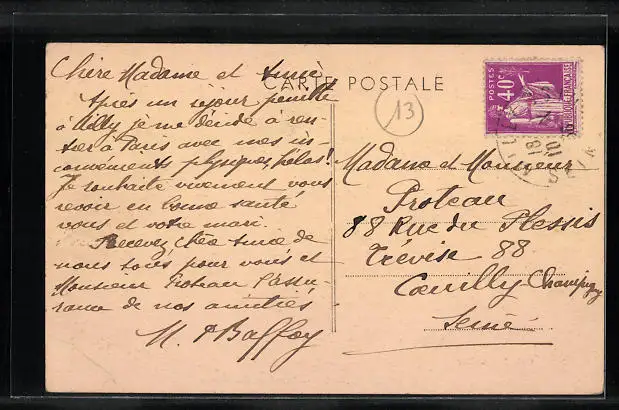 CARTE POSTALE
13
POSTES
40c
RÉPUBLIQUE FRANÇAISE
Chère Madame et Amie
Après un séjour
à Ailly je me décide à ren-
trer à Paris avec mes in-
convénients physiques, hélas!
Je souhaite vivement vous
revoir en bonne santé
vous et votre mari.
Recevez, chère amie de
nous tous pour vous et
Monsieur Proteau l'assu-
rance de nos amitiés
M. Baffoy
Madame et Monsieur
Proteau
88 Rue du Plessis
Trévise 88
Cœuilly Champigny
Seine